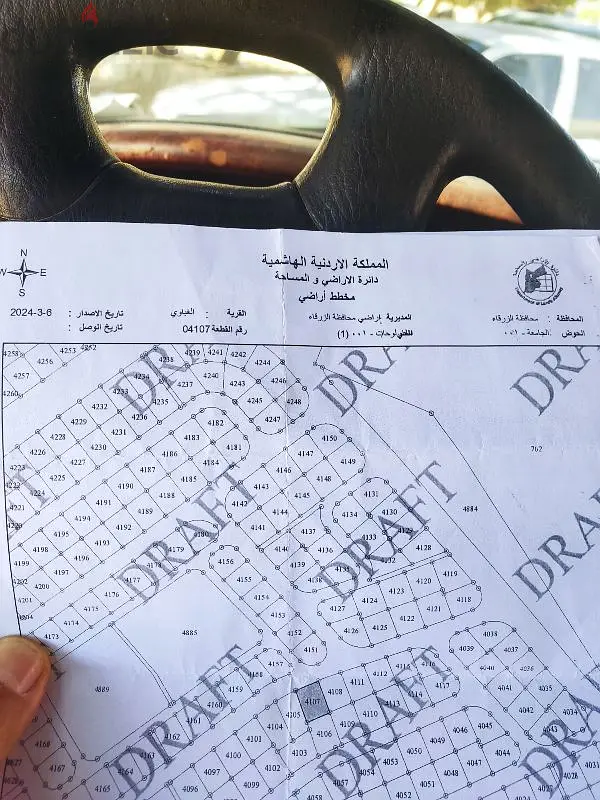 المملكة الاردنية الهاشمية
دائرة الاراضي و المساحة
مخطط أراضي
N
W E
S
المحافظة : محافظة الزرقاء
المديرية : اراضي محافظة الزرقاء
القرية : الغباوي
تاريخ الاصدار : 2024-3-6
الحوض : الجامعة - ٠٠١
لوحات - ٠٠١ (1)
رقم القطعة 04107
تاريخ الوصل :
4258 4256 4253 4252 4238 4239 4241 4242 4244
4257 4234 4237 4240 4246
4260 4233 4245 4248
4232 4235 4236 4247
4229 4231 4182 4150
4228 4230 4187 4183 4181 4147 4149
4223 4226 4227 4186 4184 4146 4148
4222 4225 4190 4185 4143 4145 4131
4221 4224 4191 4189 4188 4142 4144 4134 4130
4220 4195 4194 4192 4141 4137 4133 4129
4198 4196 4193 4180 4140 4136 4128
4199 4197 4179 4156 4139 4132 4120 4119
4202 4200 4178 4155 4138 4124 4122 4121 4118
4201 4177 4154 4127 4126 4125
4204 4176 4153
4173 4174 4175 4885 4152 4151
762
4884
4038
4039 4040 4036
4889 4158 4157 4111 4112 4114 4116
4159 4107 4108 4110 4113 4114 4117 4041 4035
4160 4105 4109 4042 4034
4168 4162 4161 4101 4104 4106 4046 4045 4043 4033
4167 4163 4100 4102 4103 4049 4047 4044
4166 4165 4164 4097 4099 4058 4054 4051 4050 4048 4031
4057 4052
DRAFT
DRAFT
DRAFT
DRAFT
DRAFT
DRAFT
DRAFT
DRAFT
DRAFT